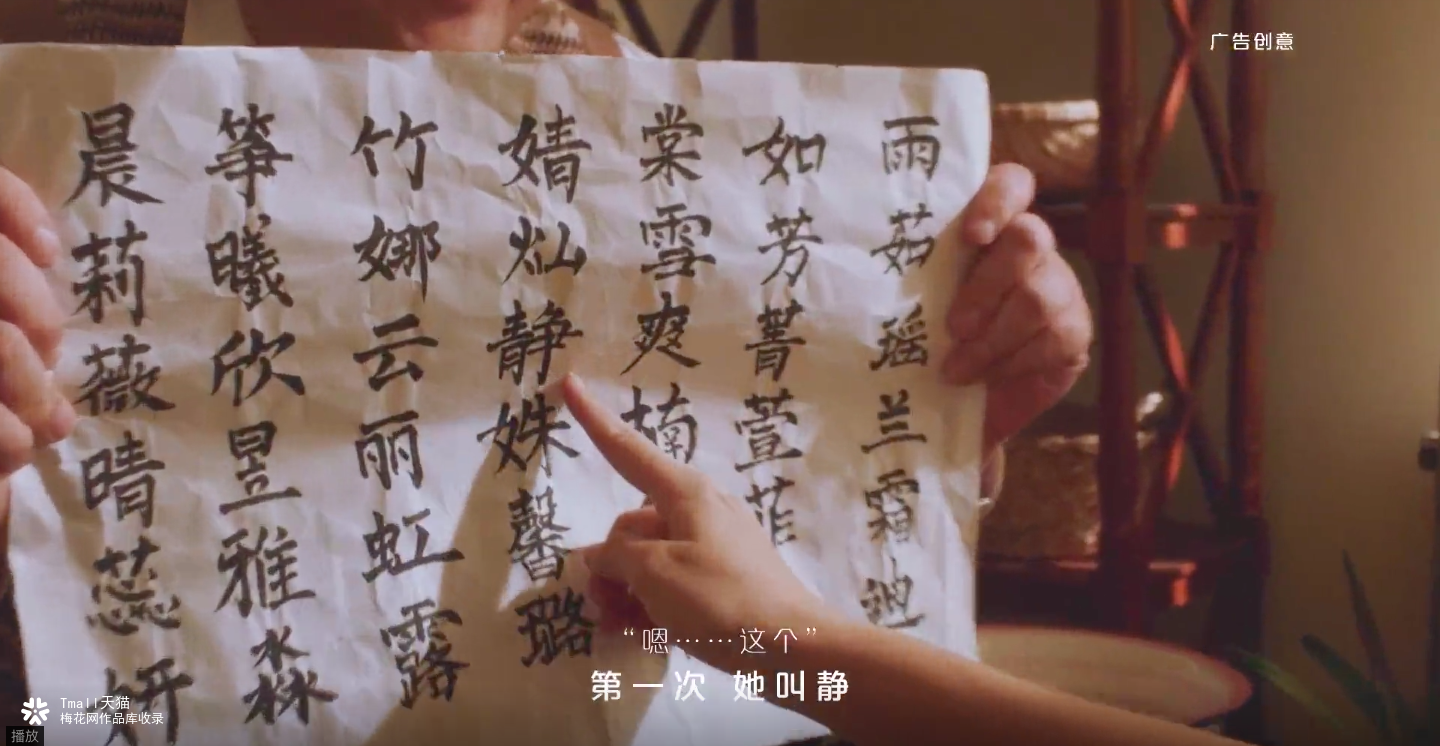 广告创意
雨茹瑶兰霜
如芳菁萱菲
棠雪爽楠
婧灿静姝馨璐
竹娜云丽虹露
筝曦欣昱雅
晨莉薇晴蕊妍
“嗯……这个”
第一次 她叫静
Tmall天猫
梅花网作品库收录
播放